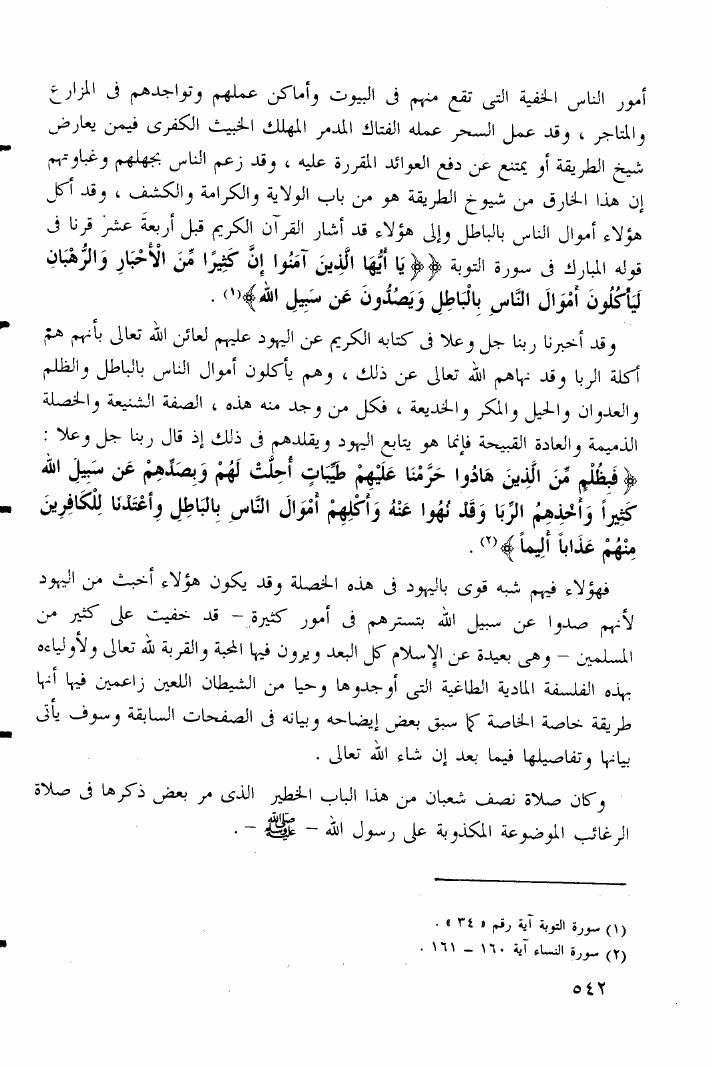 أمور الناس الخفية التى تقع منهم فى البيوت وأماكن عملهم وتواجدهم فى المزارع
والمتاجر ، وقد عمل السحر عمله الفتاك المدمر المهلك الخبيث الكفرى فيمن يعارض
شيخ الطريقة أو يمتنع عن دفع العوائد المقررة عليه ، وقد زعم الناس بجهلهم وغباوتهم
إن هذا الخارق من شيوخ الطريقة هو من باب الولاية والكرامة والكشف ، وقد أكل
هؤلاء أموال الناس بالباطل وإلى هؤلاء قد أشار القرآن الكريم قبل أربعةَ عشرَ قرنا فى
قوله المبارك فى سورة التوبة ﴿ ﴿ يَا أَيُّهَا الَّذِينَ آمَنُوا إِنَّ كَثِيرًا مِّنَ الْأَحْبَارِ وَالرُّهْبَانِ
لَيَأْكُلُونَ أَمْوَالَ النَّاسِ بِالْبَاطِلِ وَيَصُدُّونَ عَن سَبِيلِ الله ﴾(١) .
وقد أخبرنا ربنا جل وعلا فى كتابه الكريم عن اليهود عليهم لعائن الله تعالى بأنهم همْ
أكلة الربا وقد نهاهم الله تعالى عن ذلك ، وهم يأكلون أموال الناس بالباطل والظلم
والعدوان والحيل والمكر والخديعة ، فكل من وجد منه هذه ، الصفة الشنيعة والخصلة
الذميمة والعادة القبيحة فإنما هو يتابع اليهود ويقلدهم فى ذلك إذ قال ربنا جل وعلا :
﴿ فَبِظُلْمٍ مِّنَ الَّذِينَ هَادُوا حَرَّمْنَا عَلَيْهِمْ طَيِّبَاتٍ أُحِلَّتْ لَهُمْ وَبِصَدِّهِمْ عَن سَبِيلِ الله
كَثِيراً وَأَخْذِهِمُ الرِّبَا وَقَدْ نُهُوا عَنْهُ وَأَكْلِهِمْ أَمْوَالَ النَّاسِ بِالْبَاطِلِ وأَعْتَدْنَا لِلْكَافِرِينَ
مِنْهُمْ عَذَاباً أَلِيماً ﴾(٢) .
فهؤلاء فيهم شبه قوى باليهود فى هذه الخصلة وقد يكون هؤلاء أخبث من اليهود
لأنهم صدوا عن سبيل الله بتسترهم فى أمور كثيرة – قد خفيت على كثير من
المسلمين – وهى بعيدة عن الإسلام كل البعد ويرون فيها المحبة والقربة لله تعالى ولأولياءه
بهذه الفلسفة المادية الطاغية التى أوجدوها وحيا من الشيطان اللعين زاعمين فيها أنها
طريقة خاصة الخاصة كما سبق بعض إيضاحه وبيانه فى الصفحات السابقة وسوف يأتى
بيانها وتفاصيلها فيما بعد إن شاء الله تعالى .
وكان صلاة نصف شعبان من هذا الباب الخطير الذى مر بعض ذكرها فى صلاة
الرغائب الموضوعة المكذوبة على رسول الله – ﷺ – .
(١) سورة التوبة آية رقم « ٣٤ » .
(٢) سورة النساء آية ١٦٠ – ١٦١ .
٥٤٢